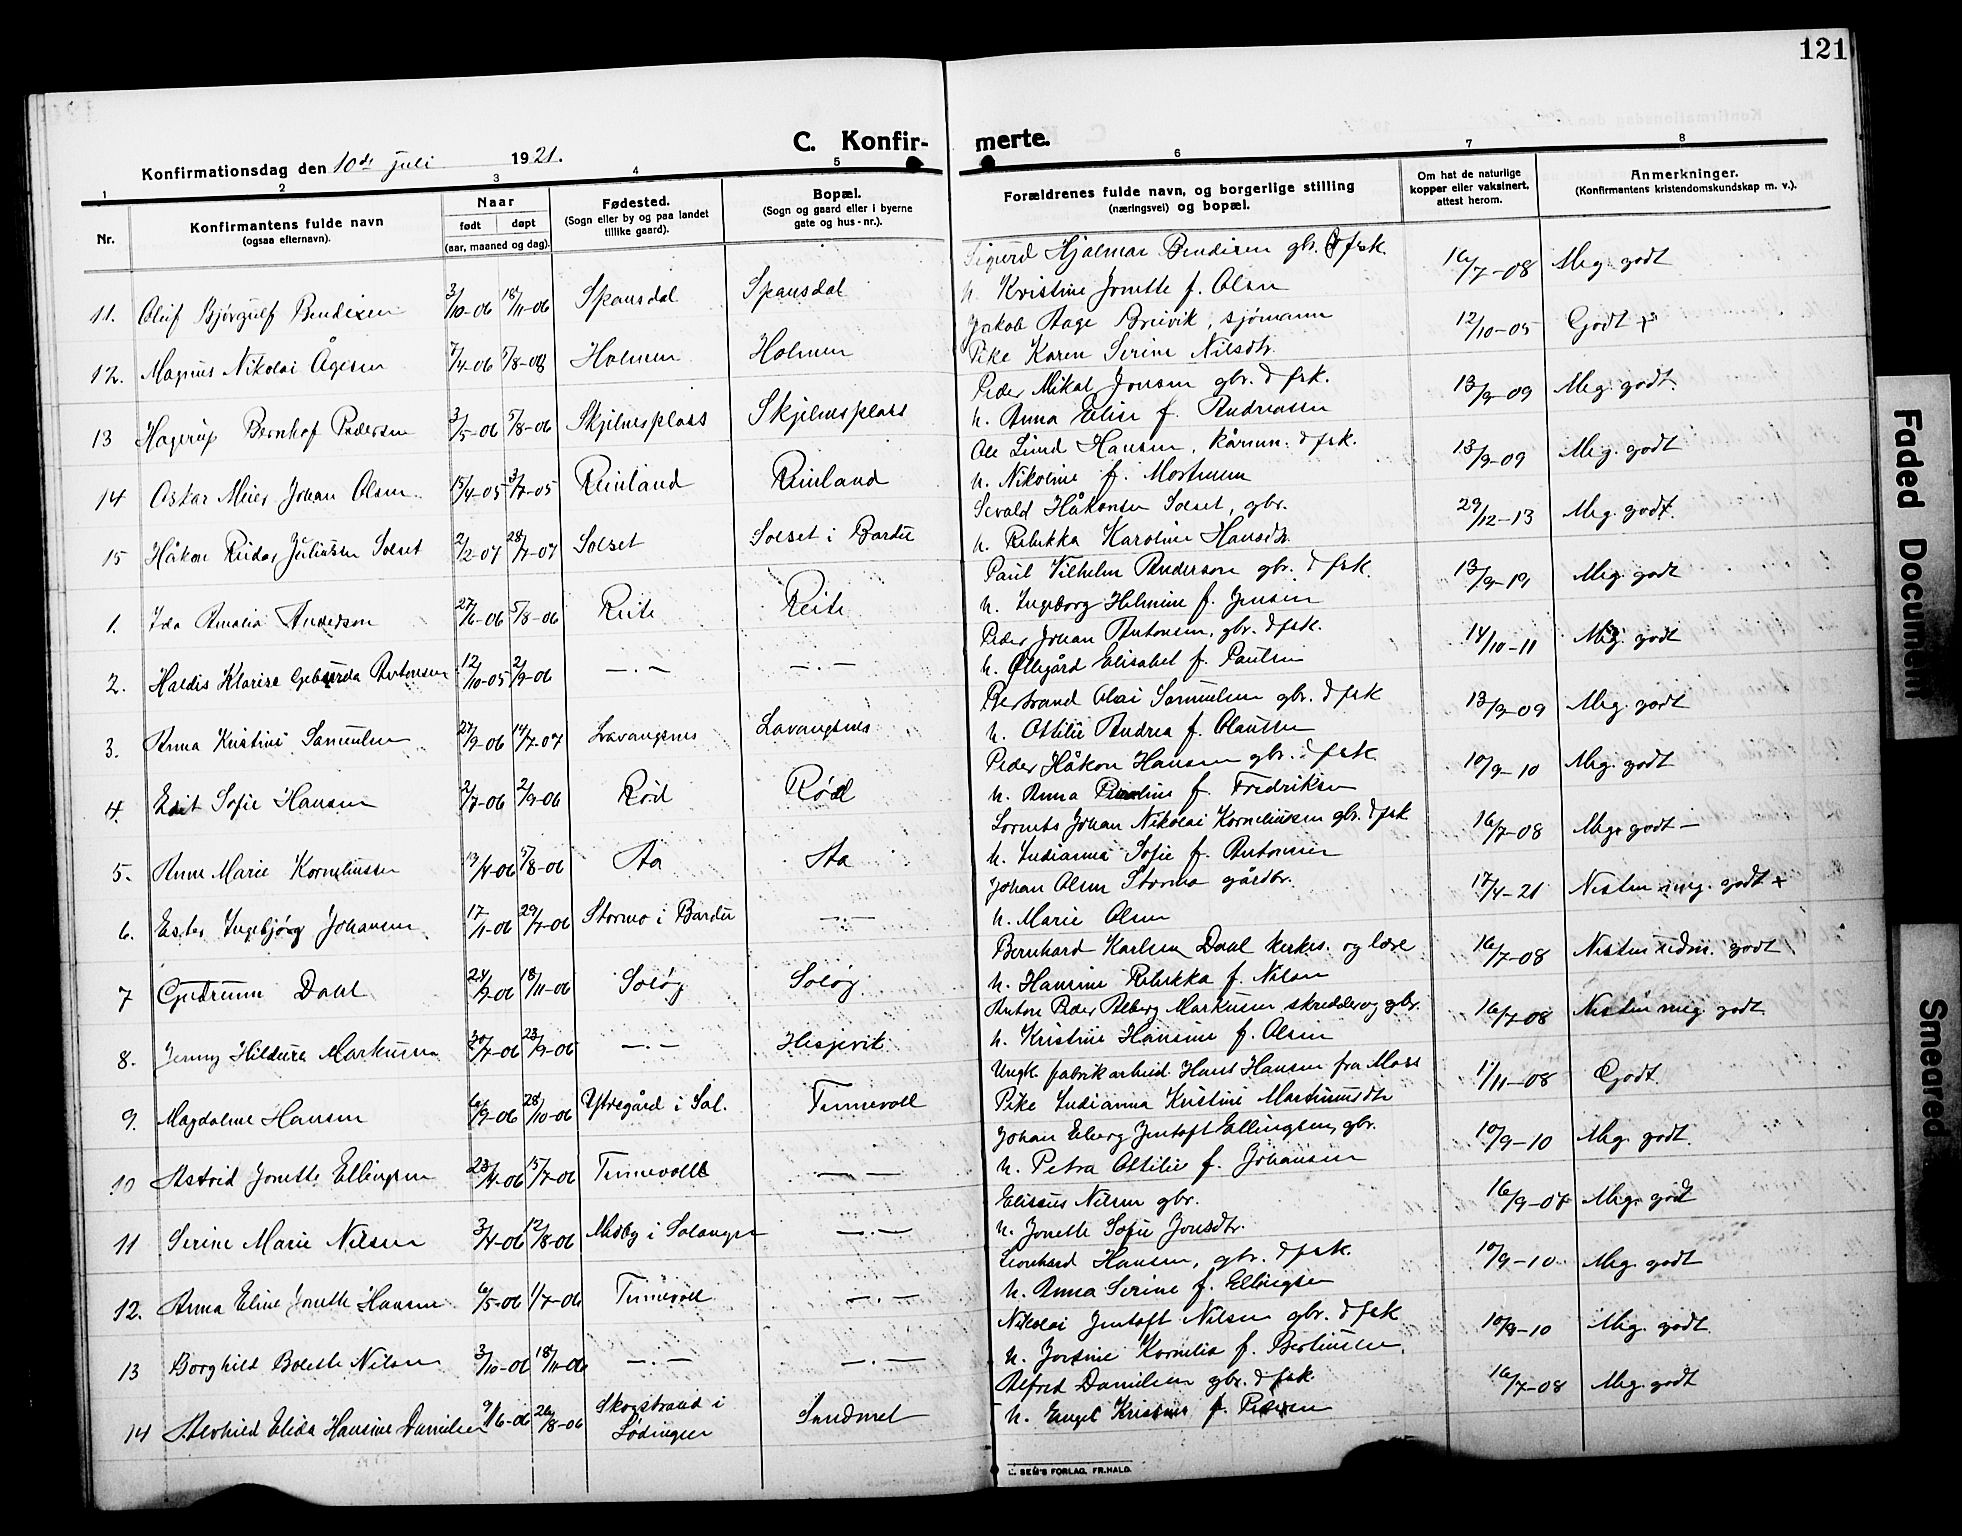 121
C. Konfir-
merte.
Konfirmationsdag den 10de juli 1921.
1
2
3
4
5
6
7
8
Nr.
Konfirmantens fulde navn
(ogsaa efternavn).
Naar
født
døpt
(aar, maaned og dag).
Fødested.
(Sogn eller by og paa landet
tillike gaard).
Bopæl.
(Sogn og gaard eller i byerne
gate og hus-nr.).
Forældrenes fulde navn, og borgerlige stilling
(næringsvei) og bopæl.
Om hat de naturlige
kopper eller vaksinert,
attest herom.
Anmerkninger.
(Konfirmantens kristendomskundskap m. v.).
Sigurd Hjalmar Bendixen gbr. & fsk
11. Oluf Bjørgulf Bendixen 3/10-06 18/11-06 Spansdal Spansdal 16/7-08 Meg. godt
h. Kristine Jonette f. Olsen
Jakob Aage Breivik, sjømann
12. Magnus Nikolai Ågesen 7/4-06 Holmen Holmen 12/10-05 Godt +
Pike Karen Serine Nilsdtr.
Peder Mikal Jensen gbr. & fsk.
13 Hagerup Bernhof Pedersen 3/5-06 5/8-06 Skjelnesplass Skjelnesplass 13/9-09 Meg. godt.
h. Anna Elise f. Andreassen
Ole Lund Hansen, kårm. & fsk.
14 Oskar Meier Johan Olsen 15/4-05 3/7-05 Reinland Reinland 13/9-09 Meg. godt
h. Nikoline f. Mortensen
Sevald Håkonsen Solset, gbr.
15 Håkon Reidar Juliussen Solset 2/2-07 28/7-07 Solset Solset i Bardu 29/12-13 Meg. godt.
h. Rebekka Karoline Hansdtr.
Paul Vilhelm Anderson gbr. & fsk.
1. Ida Amalia Anderson 27/6-06 5/8-06 Reite Reite 13/9-19 Meg. godt
h. Ingeborg Helmine f. Jensen
Peder Johan Antonsen, gbr. & fsk.
2. Haldis Klarisa Antonsen 12/10-05 2/9-06 —.— —.— 14/10-11 Meg. godt
h. Ollegård Elisabet f. Paulsen
Bertrand Olai Samuelsen gbr. & fsk
3. Anna Kristine Samuelsen 27/9-06 14/7-07 Lavangsnes Lavangsnes 13/9-09 Meg. godt
h. Ottilie Andrea f. Claussen
Peder Håkon Hansen gbr. & fsk
4. Edit Sofie Hansen 2/7-06 2/9-06 Rød Rød 10/9-10 Meg. godt
h. Anna Pauline f. Fredriksen
Lorents Johan Nikolai Korneliussen gbr. & fsk
5. Anne Marie Korneliussen 13/4-06 5/8-06 Aa Aa 16/7-08 Meg. godt —
h. Indianna Sofie f. Antonsen
Johan Olsen Stormo gårdbr.
6. Ester Ingebjørg Johansen 17/1-06 29/7-06 Stormo i Bardu —.— 17/4-21 Nesten meg. godt +
h. Marie Olsen
Bernhard Karlsen Dahl kirkes. og lære
7 Gudrunn Dahl 24/7-06 18/11-06 Soløy Soløy 16/7-08 Nesten udm. godt
h. Hansine Rebekka f. Nilsen
Anton Peder Alberg Markussen skredder og gbr.
8. Jenny Hildura Markussen 30/7-06 23/9-06 —.— Hesjevik 16/7-08 Nesten meg. godt
h. Kristine Hansine f. Olsen
Ungk. fabrikarbeid. Hans Hansen fra Moss
9. Magdalene Hansen 6/9-06 28/10-06 Ytregård i Sal. Tennevoll 1/11-08 Godt.
Pike Indianna Kristine Martinusdtr
Johan Eberg Jentoft Ellingsen, gbr.
10 Astrid Jonette Ellingsen 23/4-06 15/7-06 Tennevoll —.— 10/9-10 Meg. godt.
h. Petra Ottilie f. Johansen
Elisæus Nilsen gbr.
11 Serine Marie Nilsen 3/4-06 12/8-06 Medby i Salangen —.— 16/9-07 Meg. godt
h. Jonette Sofie Jonsdtr.
Leonhard Hansen, gbr. & fsk.
12. Anna Eline Jonette Hansen 6/5-06 1/7-06 Tennevoll —.— 10/9-10 Meg. godt
h. Anna Serine f. Ellingsen
Nikolai Jentoft Nilsen gbr. & fsk
13 Borghild Bolette Nilsen 3/10-06 18/11-06 —.— —.— 10/9-10 Meg. godt.
h. Jorsine Kornelia f. Bertinsen
Alfred Danielsen gbr. & fsk.
14 Alvhild Elida Hansine Danielsen 9/6-06 26/8-06 Skogstrand i Sandnes 16/7-08 Meg. godt
Lødingen
h. Engel Kristine f. Pedersen
E. SEM'S FORLAG, FR.HALD.
Faded Document
Smeared